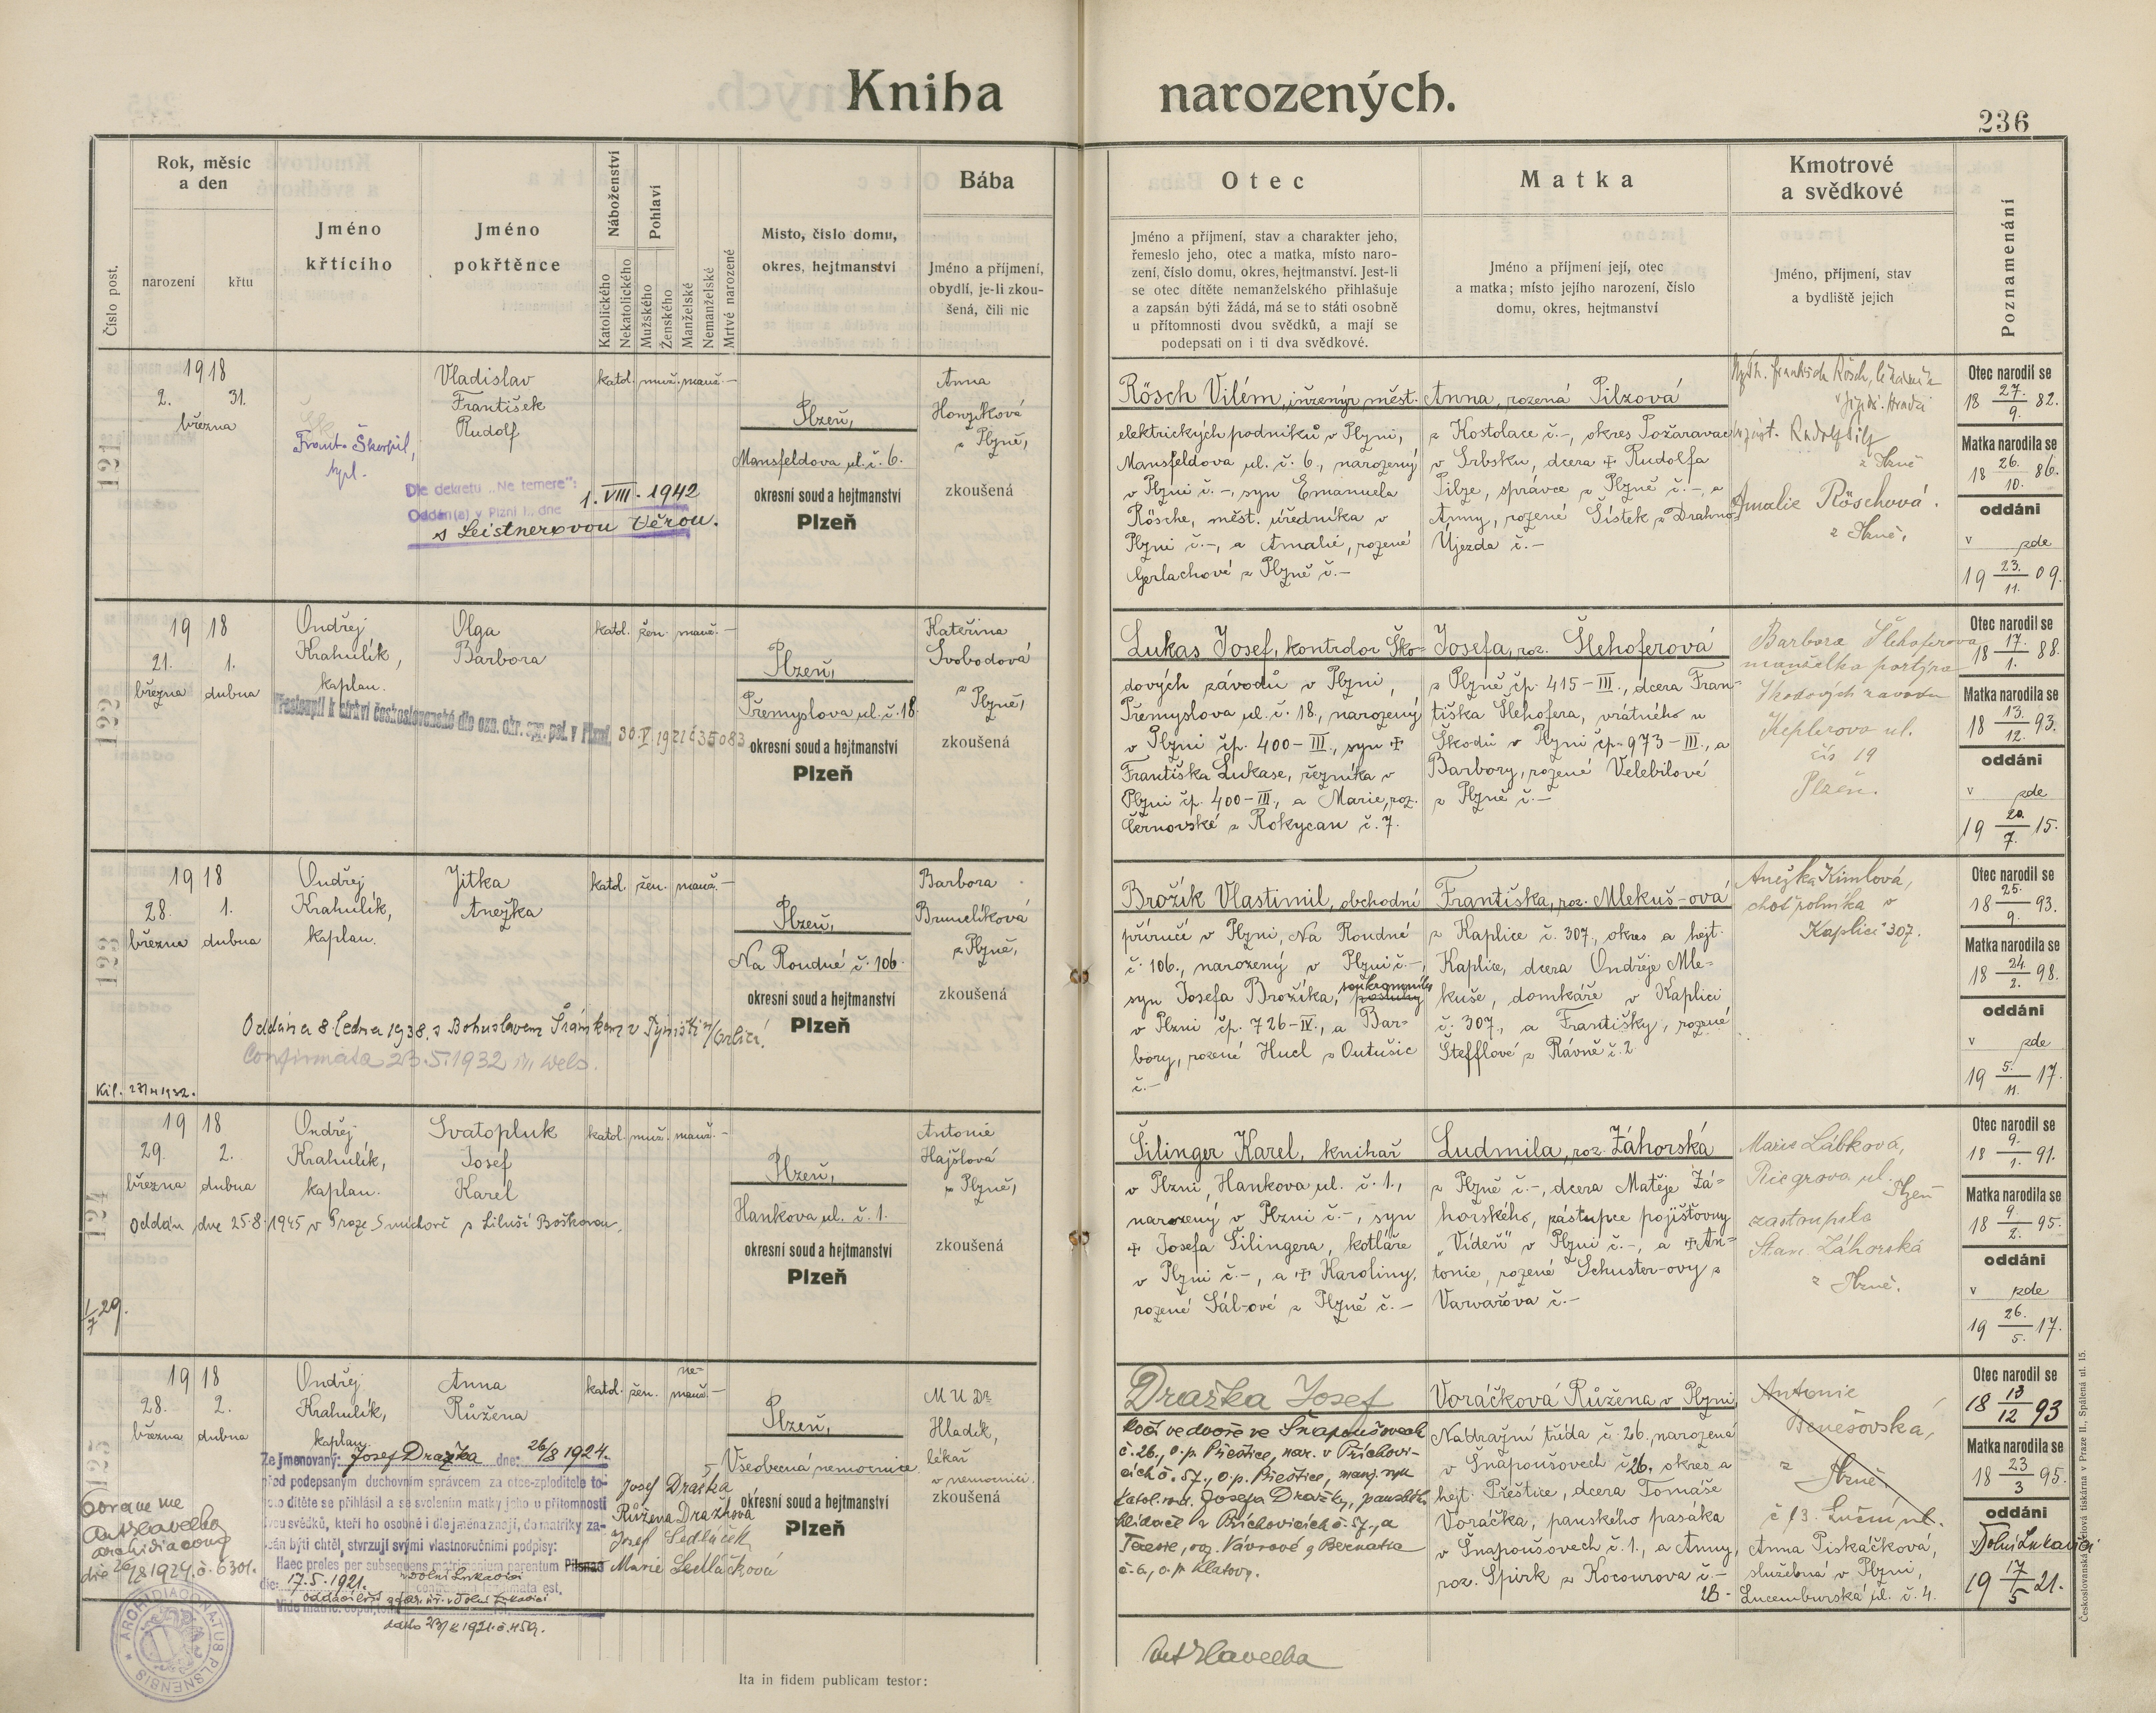 Kniha narozených.
236
Číslo post.
Rok, měsíc
a den
narození
křtu
Jméno
křtícího
Jméno
pokřtěnce
Náboženství
Katolického
Nekatolického
Pohlaví
Mužského
Ženského
Manželské
Nemanželské
Mrtvé narozené
Místo, číslo domu,
okres, hejtmanství
Bába
Jméno a příjmení,
obydlí, je-li zkou-
šená, čili nic
Otec
Jméno a příjmení, stav a charakter jeho,
řemeslo jeho, otec a matka, místo naro-
zení, číslo domu, okres, hejtmanství. Jest-li
se otec dítěte nemanželského přihlašuje
a zapsán býti žádá, má se to státi osobně
u přítomnosti dvou svědků, a mají se
podepsati on i ti dva svědkové.
Matka
Jméno a příjmení její, otec
a matka; místo jejího narození, číslo
domu, okres, hejtmanství
Kmotrové
a svědkové
Jméno, příjmení, stav
a bydliště jejich
Poznamenání
121
1918
2. 31.
března
Frant. Škorpil,
Vladislav
František
Rudolf
katol. muž. manž. —
Plzeň,
Mansfeldova ul. č. 6.
okresní soud a hejtmanství
Plzeň
Anna
Honzíková
z Plzně,
zkoušená
Dle dekretu „Ne temere":
Oddán(a) v Plzni I., dne 1. VIII. 1942
s Leistnerovou Věrou.
Rösch Vilém, inženýr měst.
elektrických podniků v Plzni,
Mansfeldova ul. č. 6., narozený
v Plzni č. –, syn Emanuela
Rösche, měst. úředníka v
Plzni č. –, a Amalie, rozené
Gerlachové z Plzně č. –
Anna, rozená Pilzová
z Kostolace č. –, okres Požarevac
v Srbsku, dcera ✝ Rudolfa
Pilze, správce z Plzně č. –, a
Anny, rozené Šístek z Drahno-
Újezda č. –
František Rösch, lékárník
v Jindř. Hradci
Rudolf Pilz
z Plzně
Amalie Röschová.
z Plzně,
Otec narodil se
18 27./9. 82.
Matka narodila se
18 26./10. 86.
oddáni
v zde
19 23./11. 09.
122
1918
21. 1.
března dubna
Ondřej
Krahulík,
kaplan.
Olga
Barbora
katol. žen. manž. —
Plzeň,
Přemyslova ul. č. 18.
okresní soud a hejtmanství
Plzeň
Kateřina
Svobodová
z Plzně,
zkoušená
Přestoupil k církvi československé dle ozn. okr. spr. pol. v Plzni 30. V. 1921 č 35083
Lukas Josef, kontrolor Ško-
dových závodů v Plzni,
Přemyslova ul. č. 18., narozený
v Plzni čp. 400-III., syn ✝
Františka Lukase, řezníka v
Plzni čp. 400-III., a Marie, roz.
Černovské z Rokycan č. 7.
Josefa, roz. Šlehoferová
z Plzně čp. 415-III., dcera Fran-
tiška Šlehofera, vrátného u
Škodů v Plzni čp. 973-III., a
Barbory, rozené Velebilové
z Plzně č. –
Barbora Šlehoferova
manželka portýra
Škodových zavodu
Keplerova ul.
čís 19
Plzen.
Otec narodil se
18 17./1. 88.
Matka narodila se
18 13./12. 93.
oddáni
v zde
19 20./7. 15.
123
1918
28. 1.
března dubna
Ondřej
Krahulík,
kaplan.
Jitka
Anežka
katol. žen. manž. —
Plzeň,
Na Roudné č. 106.
okresní soud a hejtmanství
Plzeň
Barbora
Brumlíková
z Plzně,
zkoušená
Oddána 8. ledna 1938 s Bohuslavem Šrámkem v Týništi n/Orlicí.
Confirmata 23.5.1932 in Wels.
Brožík Vlastimil, obchodní
příručí v Plzni, Na Roudné
č. 106., narozený v Plzni č. –,
syn Josefa Brožíka, soukromníka
v Plzni čp. 726-IV., a Bar-
bory, rozené Hucl z Outušic
č. –
Františka, roz. Mlekuš-ová
z Kaplice č. 307., okres a hejt.
Kaplice, dcera Ondřeje Mle-
kuše, domkáře v Kaplici
č. 307., a Františky, rozené
Štefflové z Rávně č. 2
Anežka Kimlová,
choť rolníka v
Kaplici 307.
Otec narodil se
18 25./9. 93.
Matka narodila se
18 24./2. 98.
oddáni
v zde
19 5./11. 17.
124
1918
29. 2.
března dubna
Ondřej
Krahulík,
kaplan.
Svatopluk
Josef
Karel
katol. muž. manž. —
Plzeň,
Hankova ul. č. 1.
okresní soud a hejtmanství
Plzeň
Antonie
Hajšlová
z Plzně,
zkoušená
Oddán dne 25.8.1945 v Praze Smíchově s Liluší Boškovou.
1/7 29.
Šilinger Karel, knihař
v Plzni, Hankova ul. č. 1.,
narozený v Plzni č. –, syn
✝ Josefa Šilingera, kotláře
v Plzni č. –, a ✝ Karoliny,
rozené Sál-ové z Plzně č. –
Ludmila, roz. Záhorská
z Plzně č. –, dcera Matěje Zá-
horského, zástupce pojišťovny
„Vídeň" v Plzni č. –, a ✝ An-
tonie, rozené Schuster-ovy z
Varvažova č. –
Marie Lábková,
Riegrova ul.
Plzeň
zastoupila
Stan. Záhorská
z Plzně.
Otec narodil se
18 9./1. 91.
Matka narodila se
18 9./2. 95.
oddáni
v zde
19 26./5. 17.
125
1918
28. 2.
března dubna
Ondřej
Krahulík,
kaplan.
Anna
Růžena
katol. žen. ne-
manž. —
Plzeň,
Všeobecná nemocnice.
okresní soud a hejtmanství
Plzeň
MUDr
Hladík,
lékař
v nemocnici.
zkoušená
Zejmenovaný: Josef Dražka dne: 26/8 1924.
před podepsaným duchovním správcem za otce-zploditele to-
hoto dítěte se přihlásil a se svolením matky jeho u přítomnosti
dvou svědků, kteří ho osobně i dle jména znají, do matriky za-
psán býti chtěl, stvrzují svými vlastnoručními podpisy:
Haec proles per subsequens matrimonium parentum Pilsnae
die: 17.5.1921. v Dolní Lukavici
contractum legitimata est.
Josef Dražka
Růžena Dražková
Josef Sedláček
Marie Sedláčková
Coram me
Ant Havelka
archidiacono
die 26/8 1924. č. 6301.
ARCHIDIACONATUS PLSNENSIS
Ita in fidem publicam testor:
Dražka Josef
kočí ve dvoře ve Šnapoušovech
č. 26., o.p. Přeštice, nar. v Příchovi-
cích č. 57., o.p. Přeštice, manž. syn
katol. rod. Josefa Dražky, panského
hlídače v Příchovicích č. 57., a
Terezie, roz. Vávrové z Bernatic
č. 6., o.p. Klatovy.
Ant Havelka
Voráčková Růžena v Plzni,
Nádražní třída č. 26. narozená
v Snapoušovech č 26. okres a
hejt. Přeštice, dcera Tomáše
Voráčka, panského pasáka
v Šnapoušovech č. 1., a Anny,
roz. Spirk z Kocourova č. –
Antonie
Benešovská,
z
Plzně.
č 13. Luční ul.
Anna Piskáčková,
služebná v Plzni,
Lucemburská ul. č. 4.
Otec narodil se
18 13/12 93
Matka narodila se
18 23/3 95.
oddáni
v Dolní Lukavici
19 17/5 21.
Československá akciová tiskárna v Praze II., Spálená ul. 15.